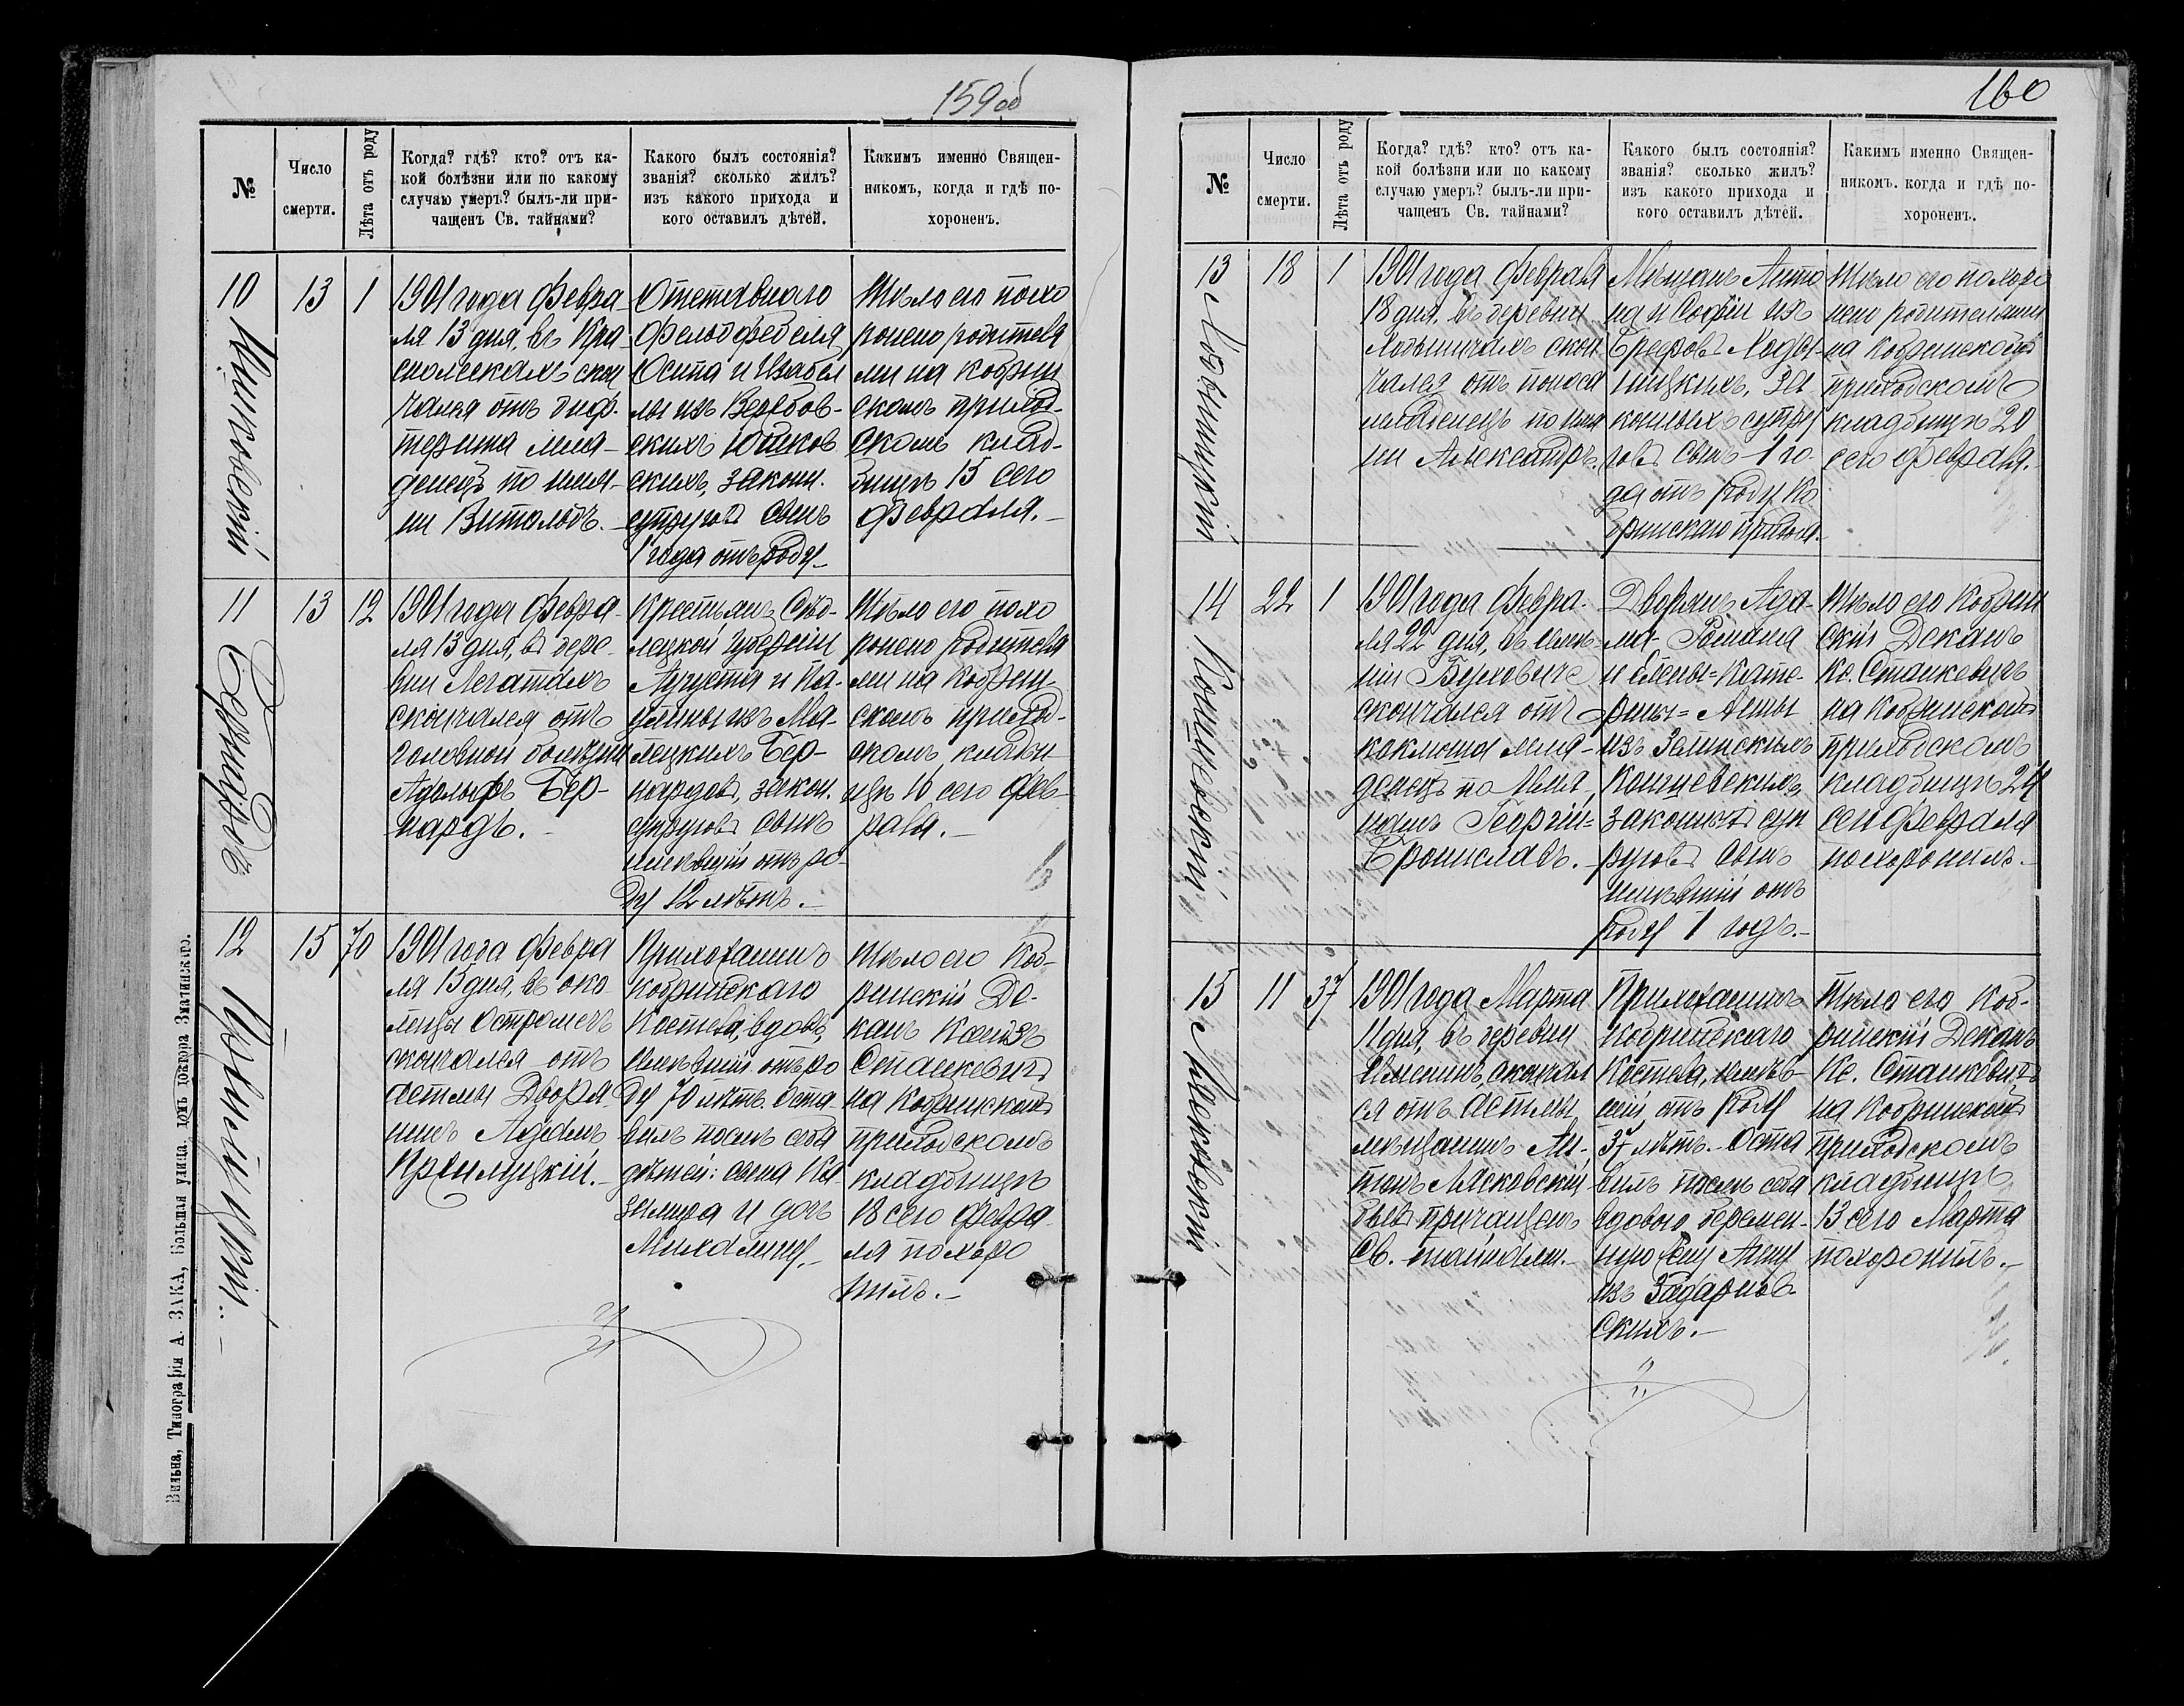 159 об
№
Число
смерти.
Лѣта отъ роду
Когда? гдѣ? кто? отъ ка-
кой болѣзни или по какому
случаю умеръ? былъ-ли при-
чащенъ Св. тайнами?
Какого былъ состоянія?
званія? сколько жилъ?
изъ какого прихода и
кого оставилъ дѣтей.
Какимъ именно Священ-
никомъ, когда и гдѣ по-
хороненъ.
10
13
1
1901 года Февра-
ля 13 дня, въ
скон
чался отъ диф-
терита мла-
денецъ по име-
ни Витольдъ.
Отставного
фельдфебеля
Осипа и Изабел
лы изъ Вербов-
скихъ
скихъ, законн.
супруговъ сынъ
1 года отъ роду
Тѣло его похо
ронено родителя
ми на Кобрин
скомъ приход-
скомъ клад-
бищѣ 15 сего
Февраля.
11
Бернардъ
13
12
1901 года Февра-
ля 13 дня, въ дере-
вни Легатахъ
скончался отъ
головной болѣзни
Адольфъ Бер-
нардъ.
Крестьянъ Сѣд-
лецкой губерніи
Августа и Па-
улины изъ
Бер-
нардовъ, закон.
супруговъ сынъ
имѣвшій отъ ро-
ду 12 лѣтъ.
Тѣло его похо
ронено родителя
ми на Кобрин-
скомъ приход-
скомъ кладби-
щѣ 16 сего Фев-
раля.
12
15
70
1901 года Февра
ля 15 дня, въ око-
лицы Остромечъ
скончался отъ
астмы Дворя-
нинъ Адамъ
Прилуцкій.
Прихожанинъ
Кобринскаго
Костела, вдовъ,
имѣвшій отъ ро
ду 70 лѣтъ. Оста-
вилъ послѣ себя
дѣтей: сына Ка
зимира и дочь
Михалину.
Тѣло его Коб-
ринскій Де-
канъ Ксендзъ
Станкевичъ
на Кобринскомъ
приходскомъ
кладбищѣ
18 сего Февра-
ля похоро
нилъ.
Вильна, Типографія А. ЗАКА, Большая улица, домъ доктора Змачинскаго.
160
№
Число
смерти.
Лѣта отъ роду
Когда? гдѣ? кто? отъ ка-
кой болѣзни или по какому
случаю умеръ? былъ-ли при-
чащенъ Св. тайнами?
Какого былъ состоянія?
званія? сколько жилъ?
изъ какого прихода и
кого оставилъ дѣтей.
Какимъ именно Священ-
никомъ, когда и гдѣ по-
хороненъ.
13
18
1
1901 года Февраля
18 дня, въ деревни
скон-
чался отъ поноса
младенецъ по име
ни Александръ.
Мѣщанъ Анто
на и Софіи изъ
за
конныхъ супру
говъ сынъ 1 го-
да отъ роду Ко
бринскаго прихода.
Тѣло его похоро
нено родителями
на Кобринскомъ
приходскомъ
кладбищѣ 20
сего Февраля.
14
22
1
1901 года Февра-
ля 22 дня, въ имѣ-
ніи Буховиче
скончался отъ
коклюша мла-
денецъ по
Георгій=
Брониславъ.
Дворянъ Ада-
ма- Романа
и Елены=Кате-
рины=Анны
изъ Зелинскихъ
законныхъ суп
руговъ сынъ
имѣвшій отъ
роду 1 годъ.
Тѣло его Кобрин
скій Деканъ
Кс. Станкевичъ
на Кобринскомъ
приходскомъ
кладбищѣ 24
сего Февраля
похоронилъ.
15
Лясковскій
11
37
1901 года Марта
11 дня, въ деревни
скончал
ся отъ астмы
мѣщанинъ Ан-
тонъ Лясковскій
былъ причащенъ
Св. тайнами.
Прихожанинъ
Кобринскаго
Костела, имѣв-
шій отъ роду
37 лѣтъ. Оста
вилъ послѣ себя
вдовою беремен-
ную жену Анну
изъ
скихъ.
Тѣло его Коб-
ринскій Деканъ
Кс. Станкевичъ
на Кобринскомъ
приходскомъ
кладбищѣ
13 сего Марта
похоронилъ.